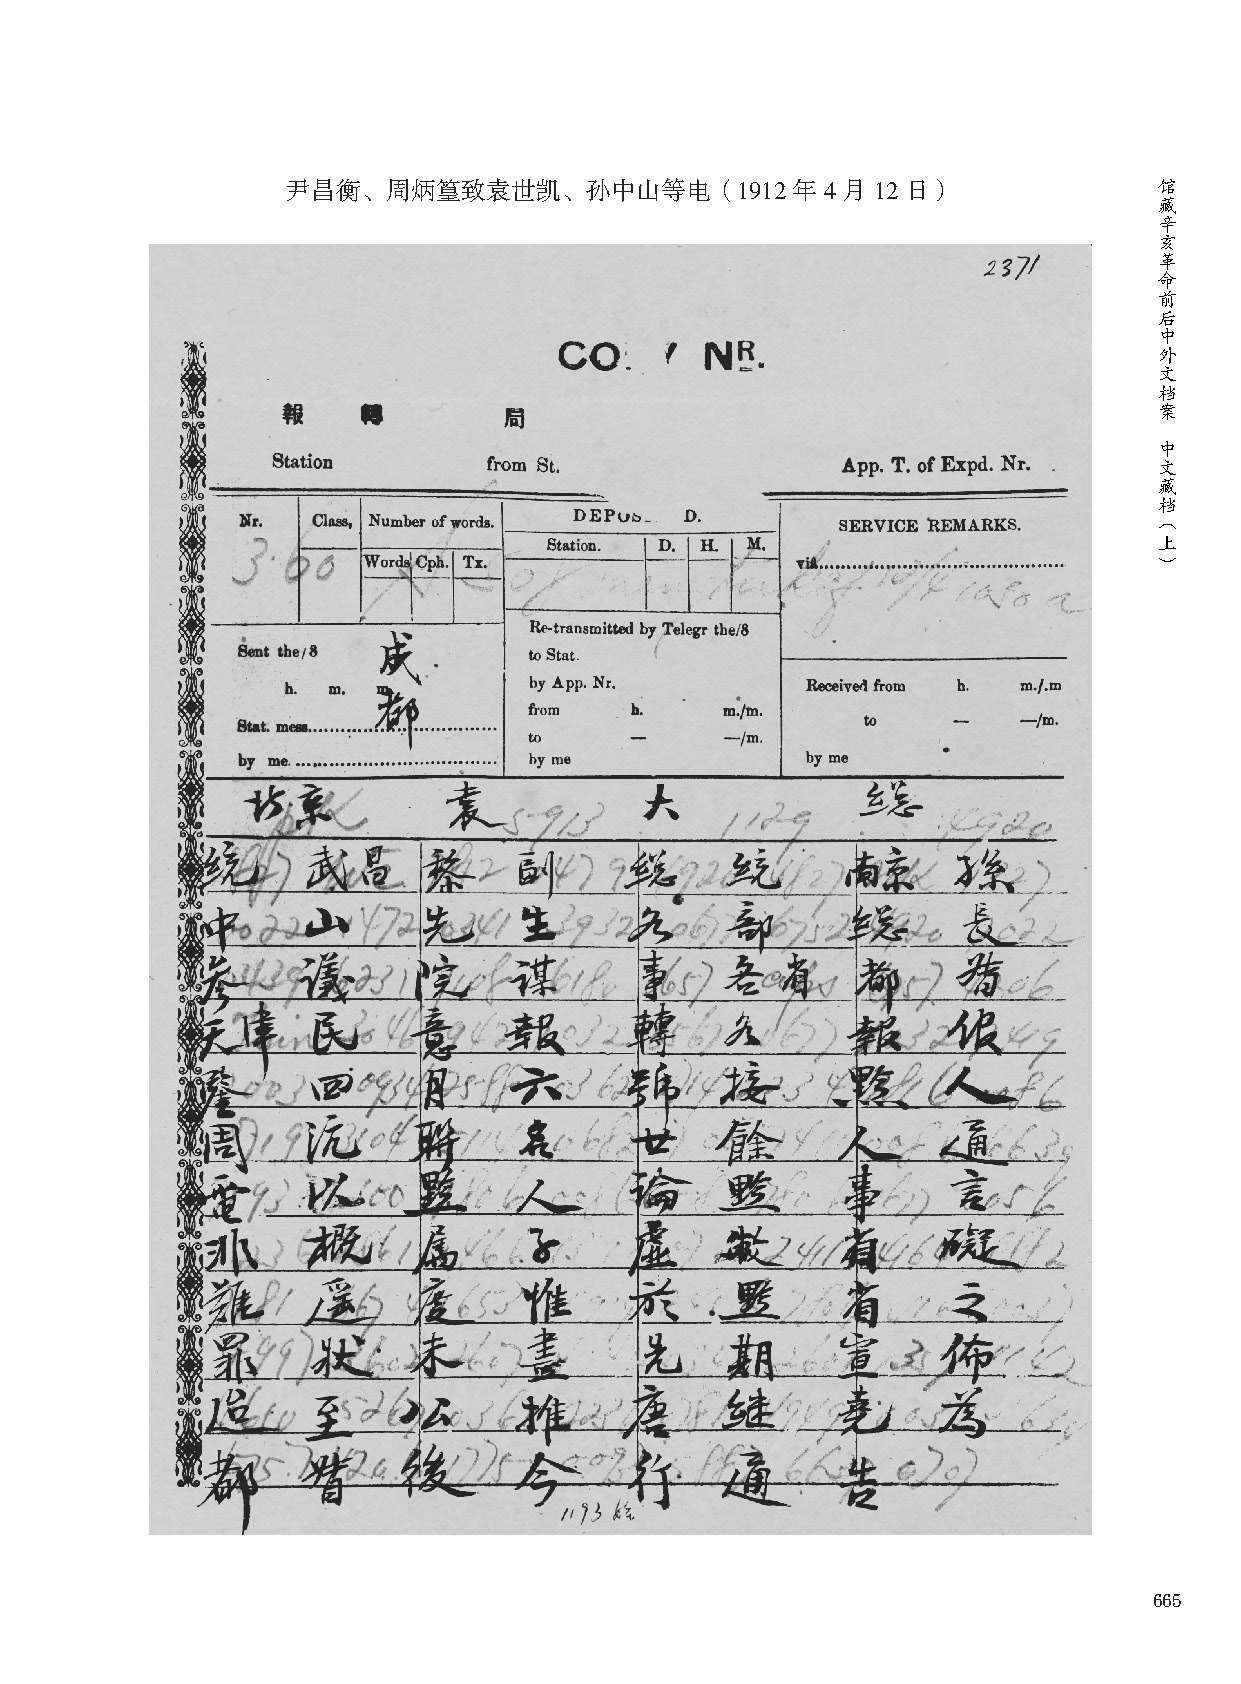 尹昌衡、周炳篁致袁世凯、孙中山等电（1912年4月12日）
馆藏辛亥革命前后中外文档案 中文藏档（上）
2371
CO NR.
報 轉 局
Station from St. App. T. of Expd. Nr.
Nr. Class, Number of words. D. SERVICE REMARKS.
Station. D. H. M.
Words Cph. Tx. via
3.60
Re-transmitted by Telegr the/8
Sent the/8 成都 to Stat.
h. m. m by App. Nr. Received from h. m./.m
Stat. mess. from h. m./m. to — —/m.
to — —/m.
by me. by me by me
北京 袁 大 総
5913 1129 4920
統 武昌 黎 副 総 統 南京 孫
中 山 先 生 各 部 総 長
参 議 院 謀 事 各省 都 督
天津 民 意 報 轉 各 報 館
四 月 六 號 接 黔 人
周 沆 聯 名 廿 餘 人 通
電 以 黔 人 論 黔 事 言
非 概 属 子 虚 敝 省 礙
難 遥 度 惟 於 黔 省 之
罪 狀 未 盡 先 期 宣 佈
迨 至 公 推 唐 继 堯 為
都 督 後 今 行 通 告
1193
665